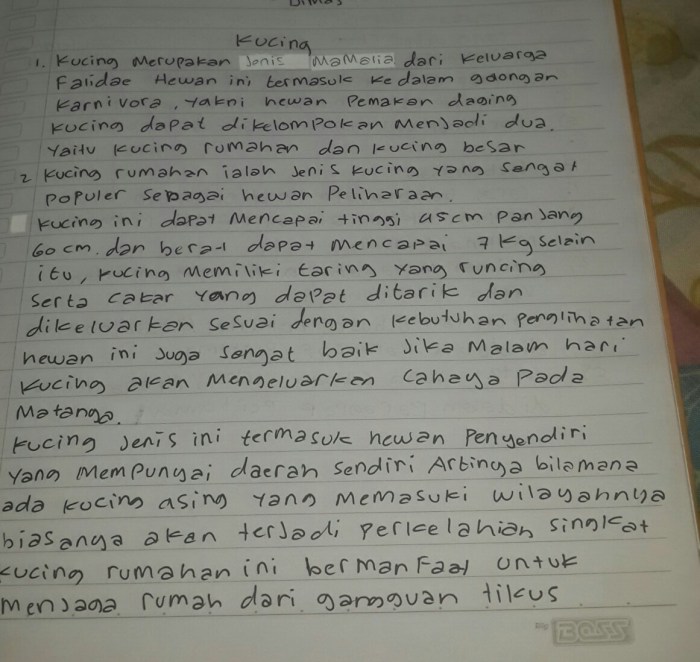 Dimas
Kucing
1. Kucing Merupakan Jenis MaMalia dari Keluarga
Falidae Hewan ini termasuk ke dalam golongan
Karnivora, Yakni hewan Pemakan daging
Kucing dapat dikelompokan Menjadi dua.
Yaitu Kucing rumahan dan Kucing besar
2 Kucing rumahan ialah Jenis Kucing Yang Sangat
Populer Sebagai hewan Peliharaan.
Kucing ini dapat Mencapai tinggi 45cm Panjang
60 cm. dan berat dapat Mencapai 7 Kg Selain
itu, Kucing Memiliki taring Yang runcing
Serta Cakar Yang dapat ditarik dan
dikeluarkan Sesuai dengan Kebutuhan Penglihatan
hewan ini Juga Sangat baik Jika Malam hari
Kucing akan Mengeluarkan Cahaya Pada
Matanya.
Kucing Jenis ini termasuk hewan Penyendiri
Yang Mempunyai daerah Sendiri Artinya bilamana
ada Kucing asing Yang Memasuki wilayahnya
biasanya akan terJadi Perkelahian Singkat
Kucing rumahan ini berManFaat Untuk
MenJaga rumah dari gangguan tikus
BOSS